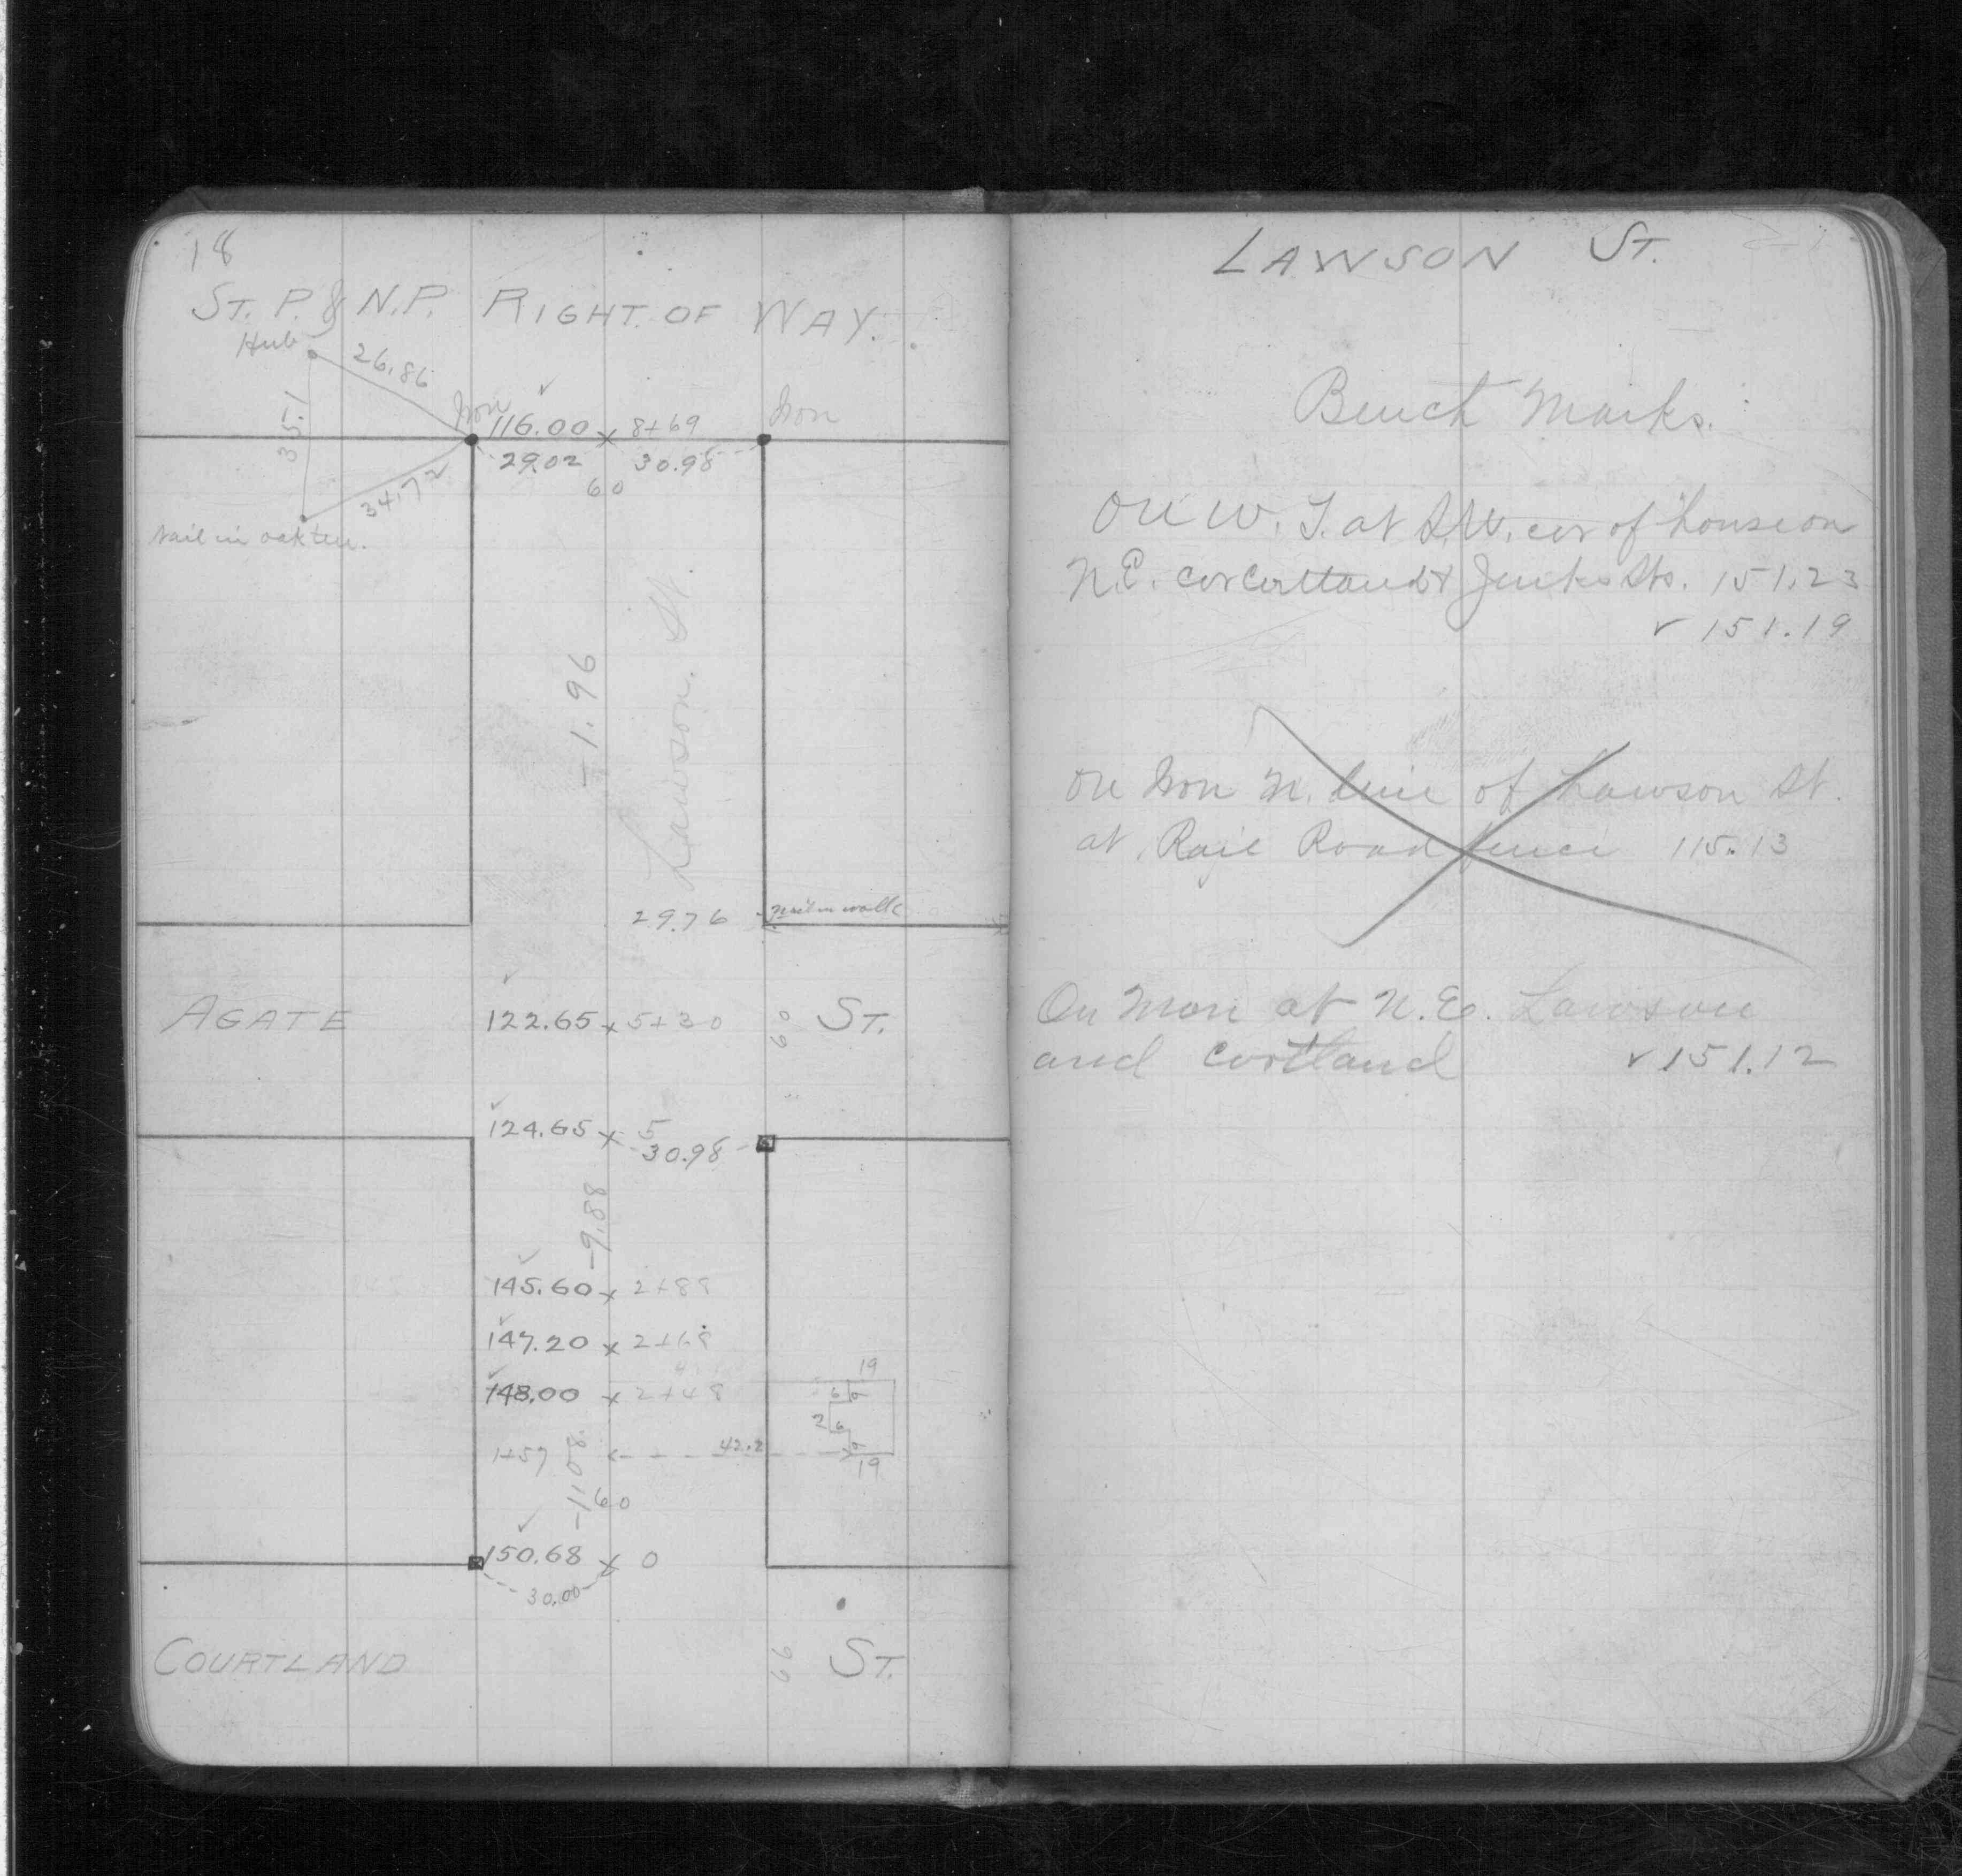 18
ST. P. & N.P. RIGHT. OF WAY.
Hub
26.86
35.1
34.72
nail in oak tree.
Iron
116.00 x 8+69
Iron
29.02
30.98
60
-1.96
Lawson. St.
29.76
nail in walk
AGATE
122.65 x 5+30
60
ST.
124.65 x 5
30.98
-9.88
145.60 x 2+88
147.20 x 2+68
148.00 x 2+48
19
6
26
1+57
42.2
19
-11.08
60
150.68 x 0
30.00
COURTLAND
66
ST.
LAWSON ST.
Bench Marks.
On W. T. at S.W. cor of house on
N.E. cor Cortland & Jenks Sts. 151.23
✓ 151.19
On Iron N. line of Lawson St.
at Rail Road fence 115.13
On Mon at N.E. Lawson
and Cortland ✓ 151.12